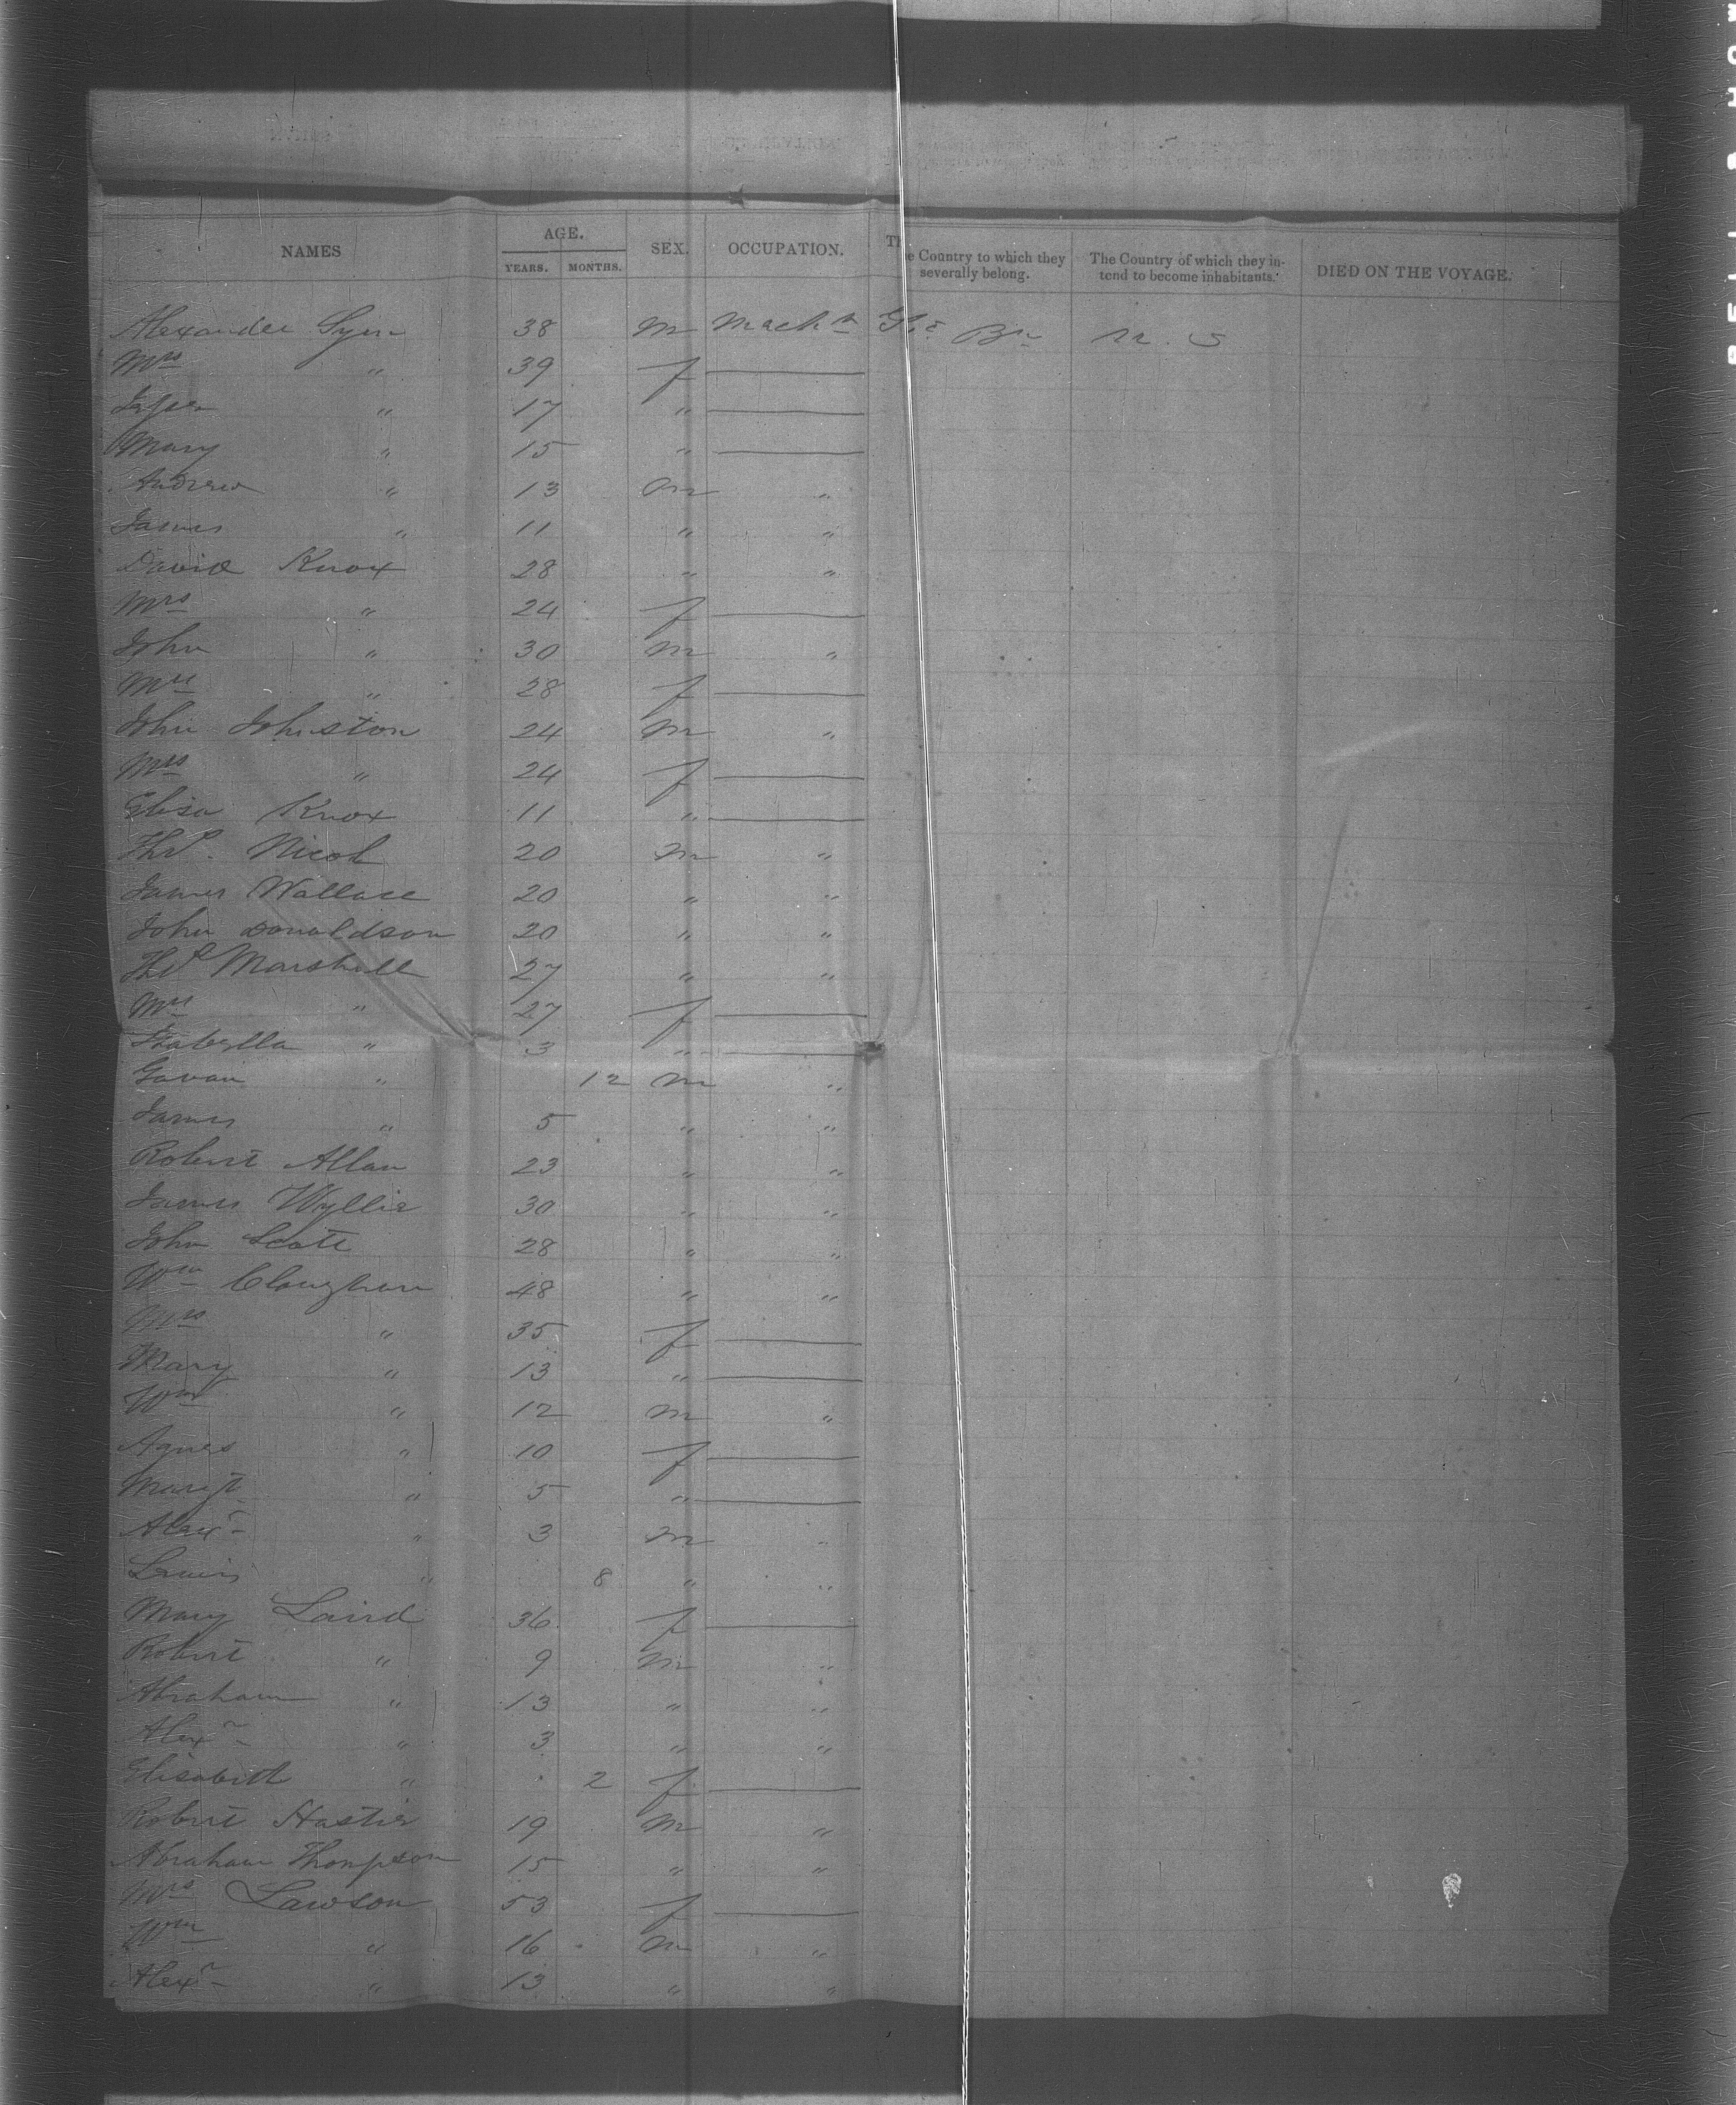 NAMES AGE. YEARS. MONTHS. SEX. OCCUPATION. The Country to which they severally belong. The Country of which they intend to become inhabitants. DIED ON THE VOYAGE.
Alexander 38 m Gt Bn U. S
Mrs " 39 f
17 "
Mary " 15 "
Andrew " 13 m "
James " 11 " "
David Knox 28 " "
Mrs " 24 f
John " 30 m "
Mrs " 28 f
John Johnston 24 m "
Mrs " 24 f
Elisa Knox 11 "
Thos. Nicol 20 m "
James Wallace 20 " "
John Donaldson 20 " "
Thos Marshall 27 " "
Mrs " 27 f
Isabella " 3 "
Gavan " 12 m "
James " 5 " "
Robert Allan 23 " "
James Wyllie 30 " "
John Scott 28 " "
Wm 48 " "
Mrs " 35 f
Mary " 13 "
Wm " 12 m "
Agnes " 10 f
Margt " 5 "
Alexr " 3 m "
" 8 " "
Mary Laird 36 f
Robert " 9 m "
Abraham " 13 " "
Alexr " 3 " "
Elisabeth " 2 f
Robert Hastie 19 m "
Abraham Thompson 15 " "
Mrs Lawson 53 f
Wm " 16 m "
Alexr " 13 " "